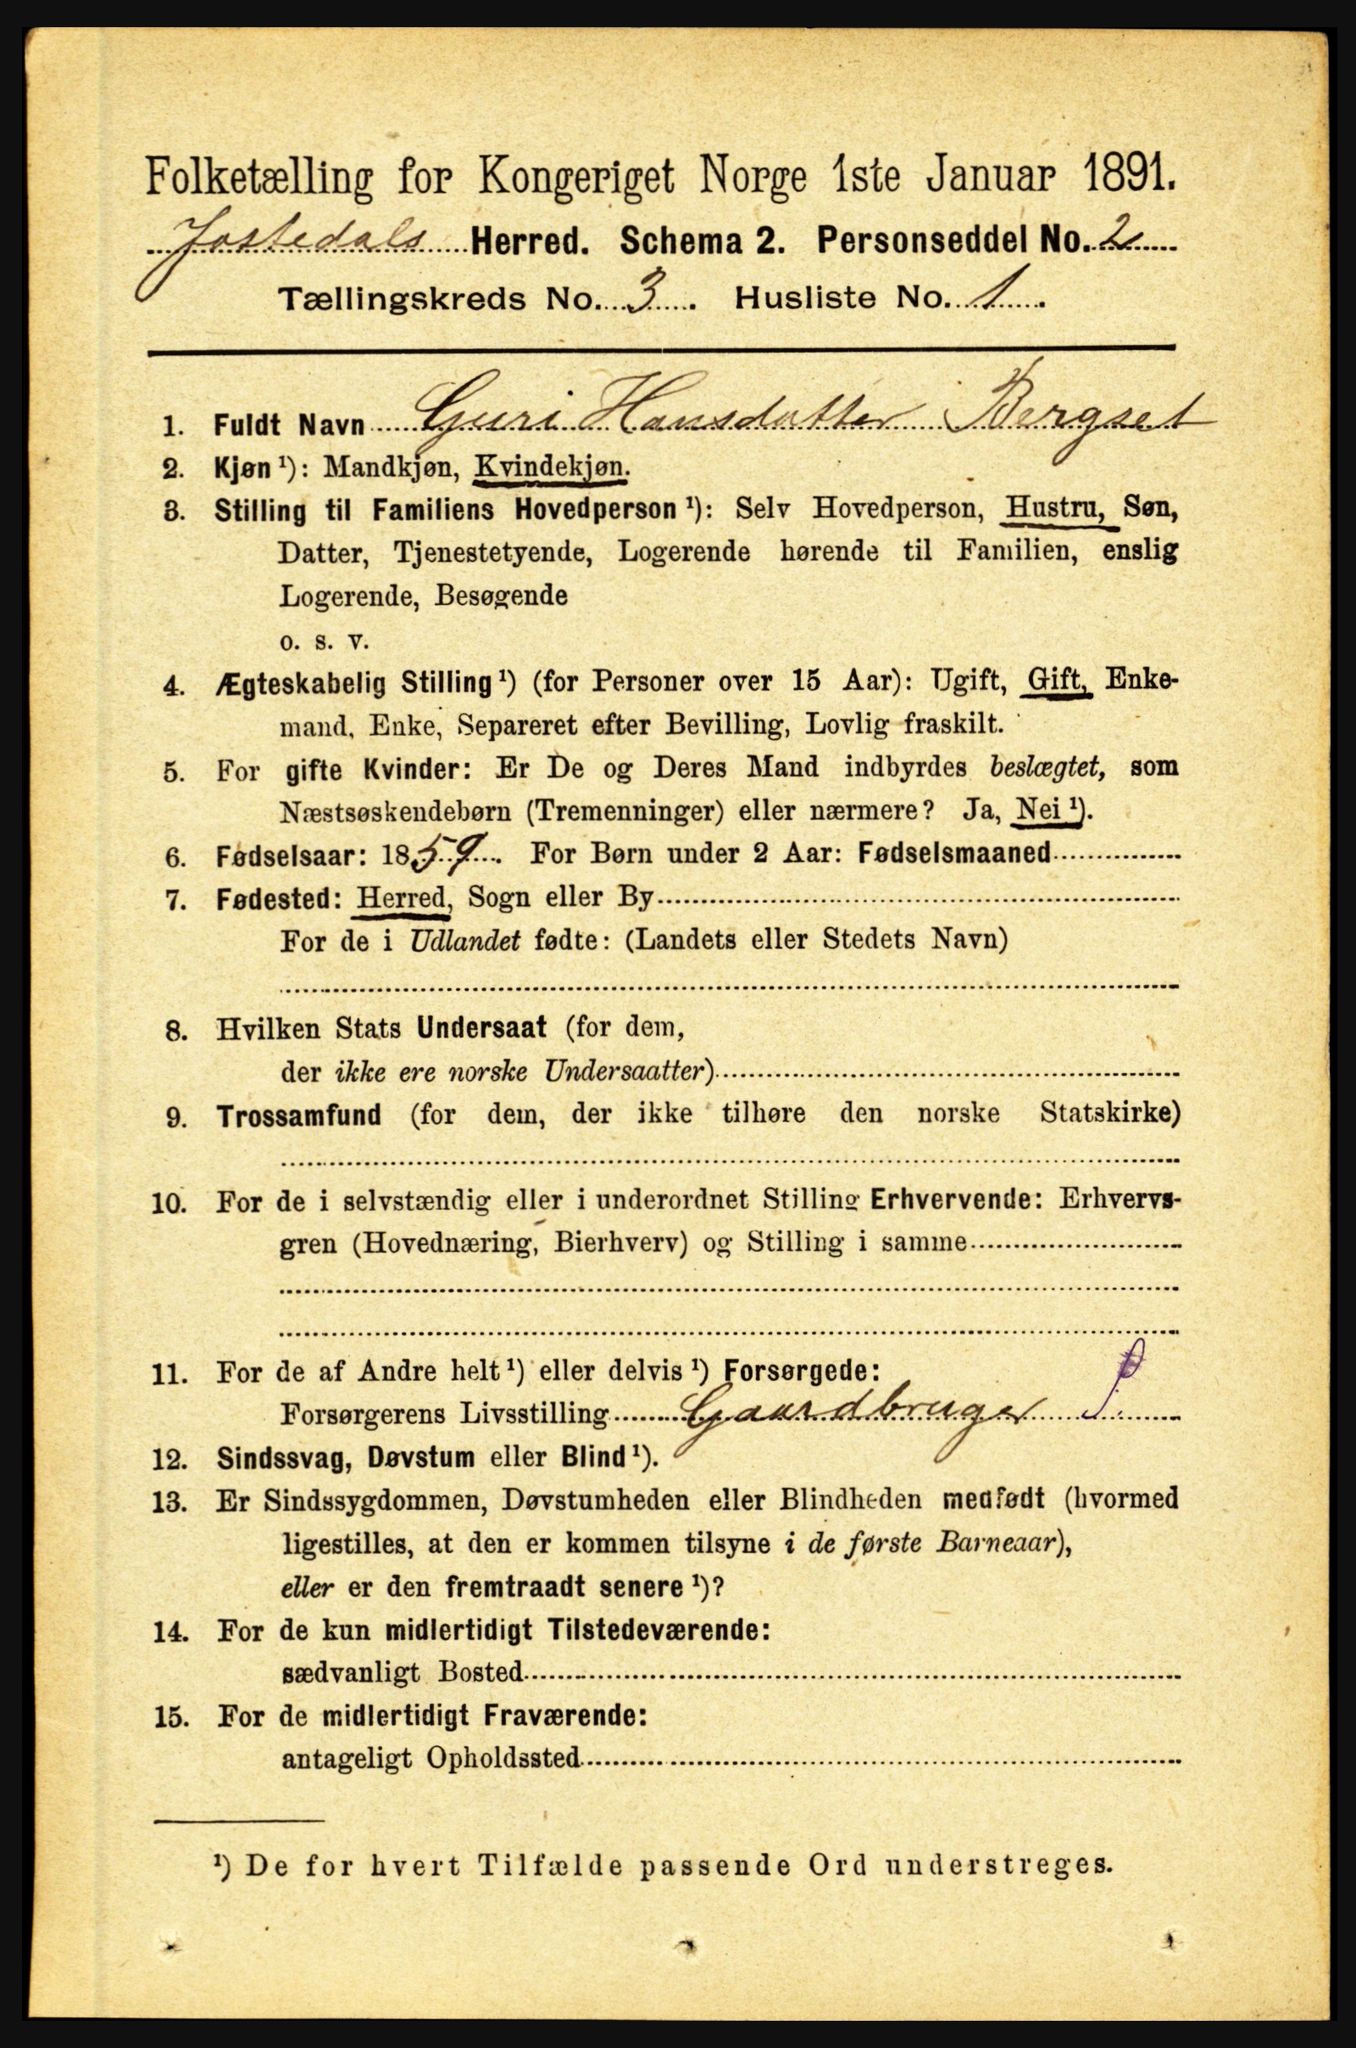 Folketælling for Kongeriget Norge 1ste Januar 1891.
Jostedals Herred. Schema 2. Personseddel No. 2
Tællingskreds No. 3. Husliste No. 1.
1. Fuldt Navn Guri Hansdatter Bergset
2. Kjøn ¹): Mandkjøn, Kvindekjøn.
3. Stilling til Familiens Hovedperson ¹): Selv Hovedperson, Hustru, Søn,
Datter, Tjenestetyende, Logerende hørende til Familien, enslig
Logerende, Besøgende
o. s. v.
4. Ægteskabelig Stilling ¹) (for Personer over 15 Aar): Ugift, Gift, Enke-
mand, Enke, Separeret efter Bevilling, Lovlig fraskilt.
5. For gifte Kvinder: Er De og Deres Mand indbyrdes beslægtet, som
Næstsøskendebørn (Tremenninger) eller nærmere? Ja, Nei ¹).
6. Fødselsaar: 1859. For Børn under 2 Aar: Fødselsmaaned
7. Fødested: Herred, Sogn eller By
For de i Udlandet fødte: (Landets eller Stedets Navn)
8. Hvilken Stats Undersaat (for dem,
der ikke ere norske Undersaatter)
9. Trossamfund (for dem, der ikke tilhøre den norske Statskirke)
10. For de i selvstændig eller i underordnet Stilling Erhvervende: Erhvervs-
gren (Hovednæring, Bierhverv) og Stilling i samme
11. For de af Andre helt ¹) eller delvis ¹) Forsørgede:
Forsørgerens Livsstilling Gaardbruger
12. Sindssvag, Døvstum eller Blind ¹).
13. Er Sindssygdommen, Døvstumheden eller Blindheden medfødt (hvormed
ligestilles, at den er kommen tilsyne i de første Barneaar),
eller er den fremtraadt senere ¹)?
14. For de kun midlertidigt Tilstedeværende:
sædvanligt Bosted
15. For de midlertidigt Fraværende:
antageligt Opholdssted
¹) De for hvert Tilfælde passende Ord understreges.